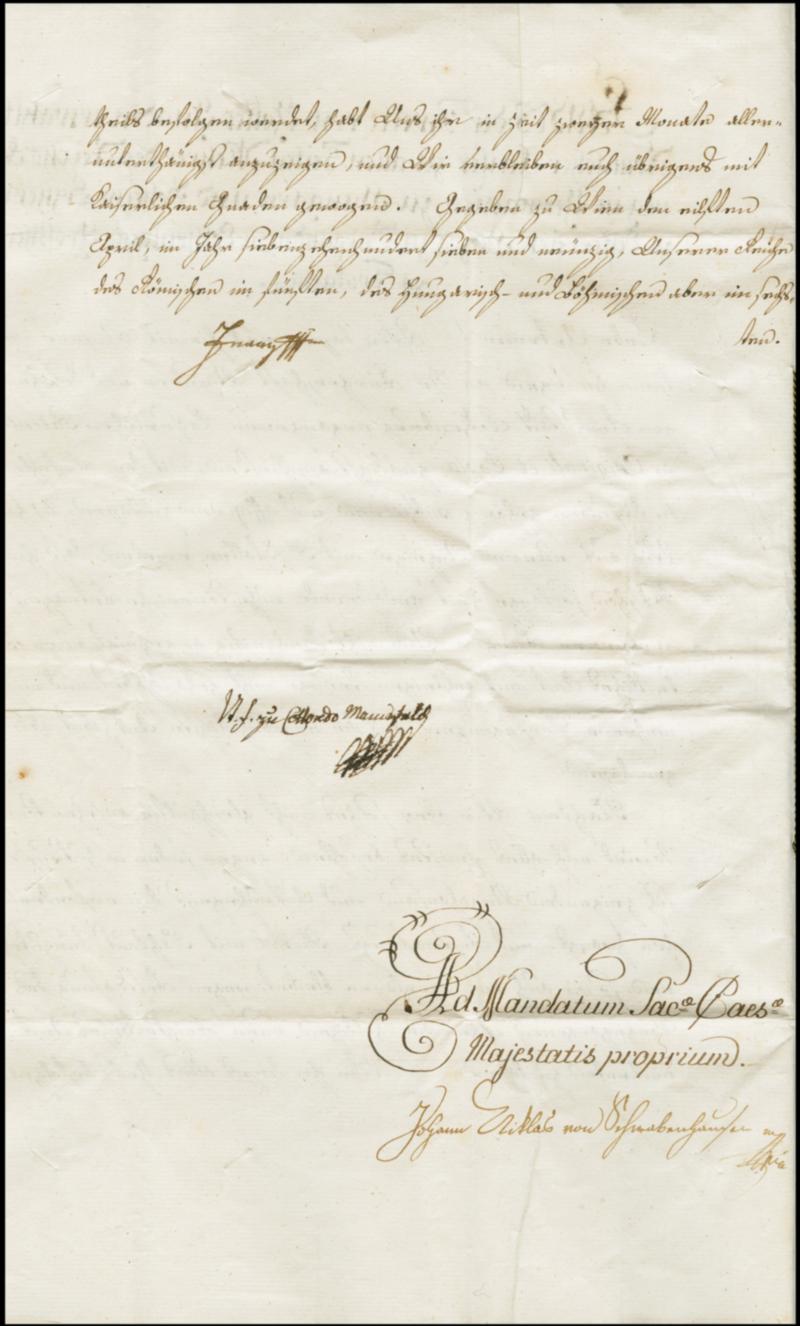 theils befolgen werdet, habt Uns ihr in Zeit zweyer Monate aller-
unterthänigst anzuzeigen, und Wir verbleiben euch übrigens mit
Kaiserlichen Gnaden gewogen. Gegeben zu Wien den eilften
April, im Jahr siebenzehenhundert sieben und neünzig, Unserer Reiche
des Römischen im fünften, des Hungarisch- und Böhmischen aber im sechs-
ten.
Franz
zu Colloredo Mannsfeld
Ad Mandatum Sacæ Caesæ
Majestatis proprium.
Johann Niklas von Schwabenhausen